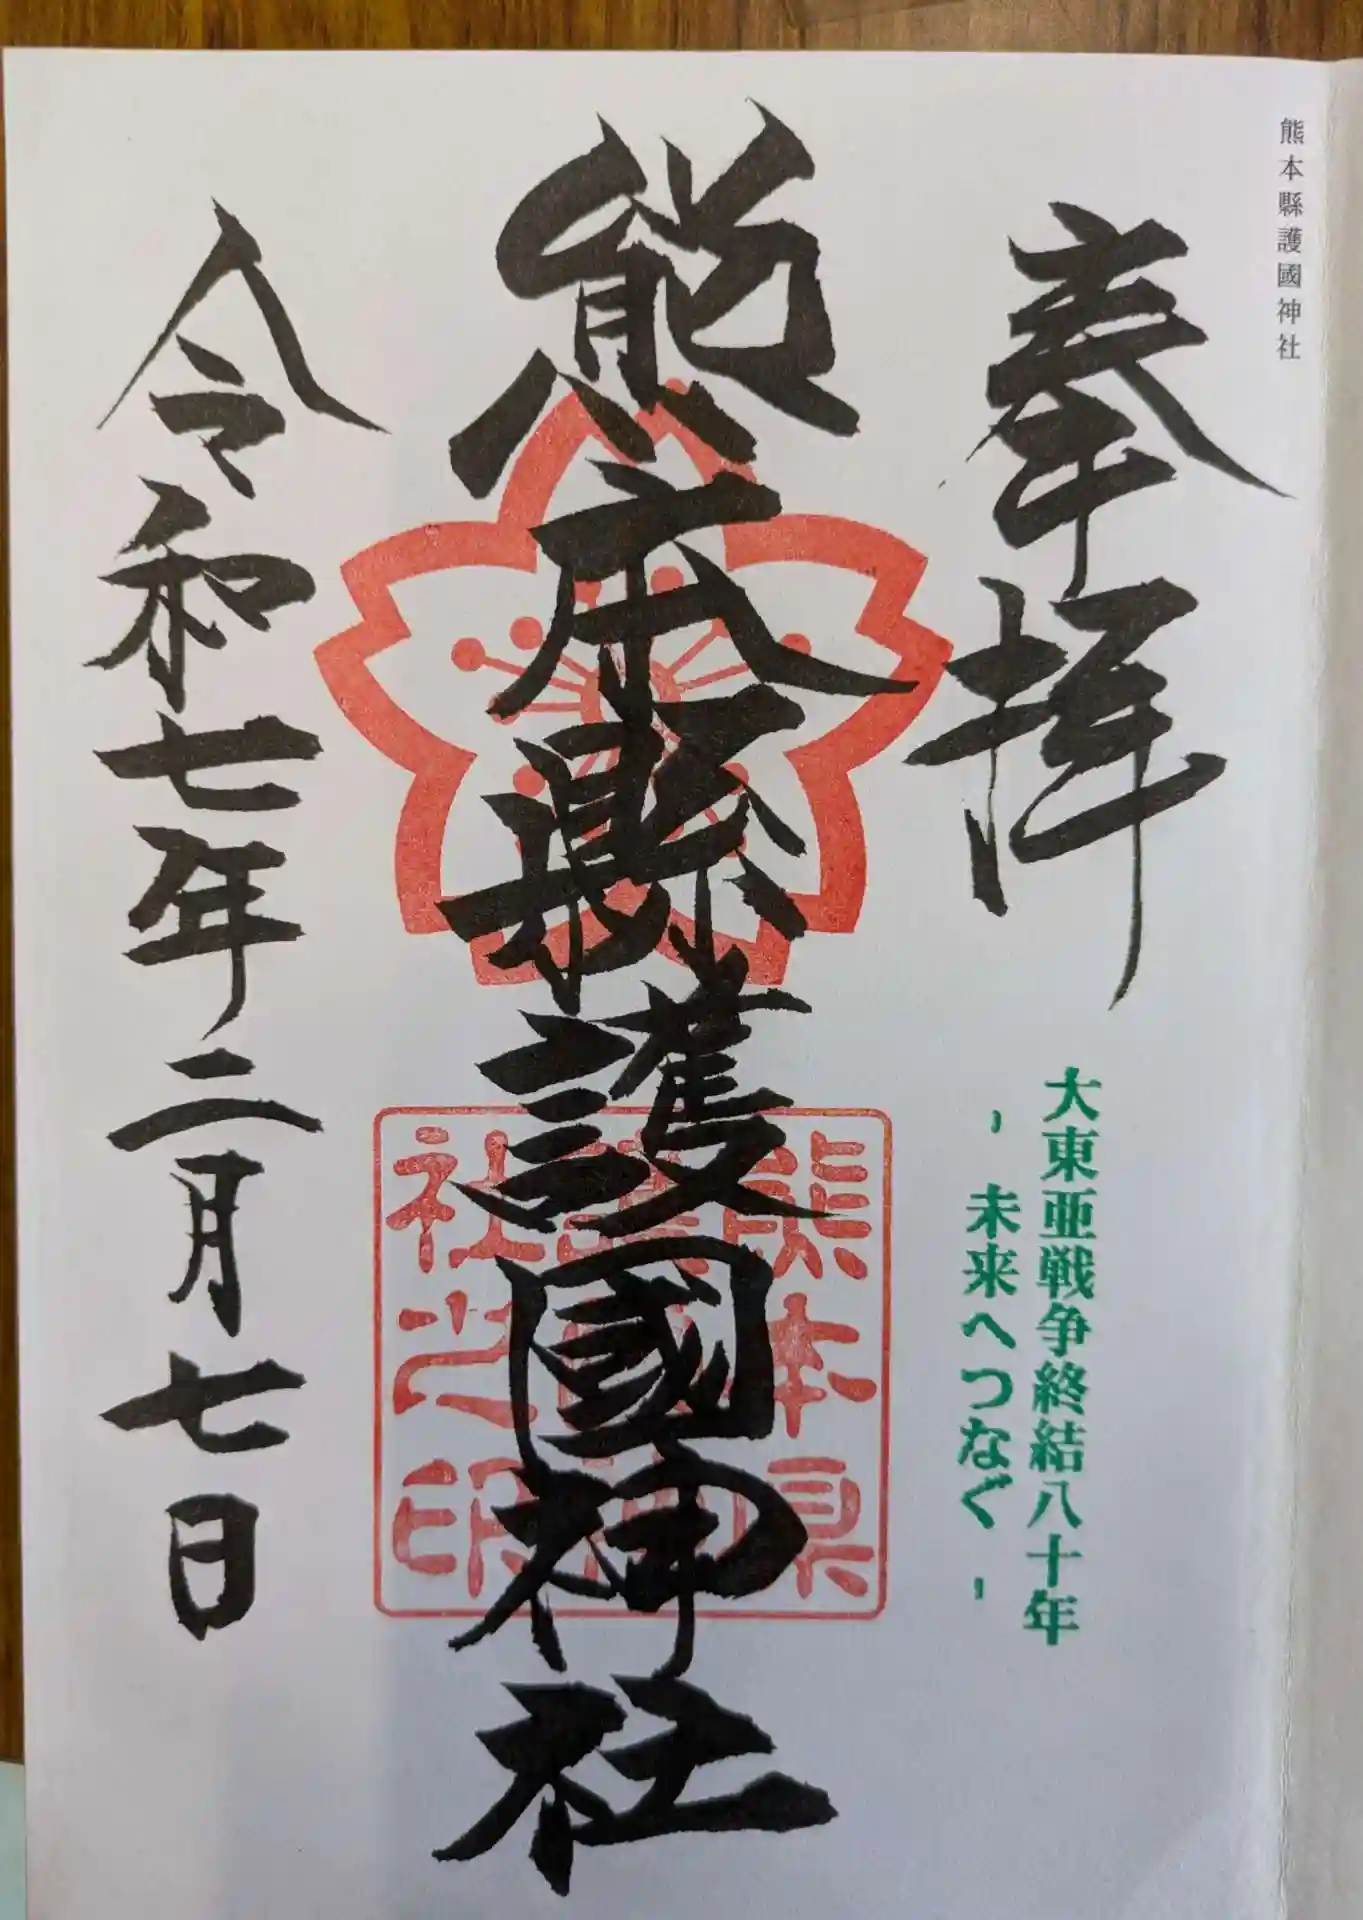 熊本縣護國神社
奉拝
大東亜戦争終結八十年
- 未来へつなぐ -
熊本縣護國神社
令和七年二月七日
熊本県
社之印